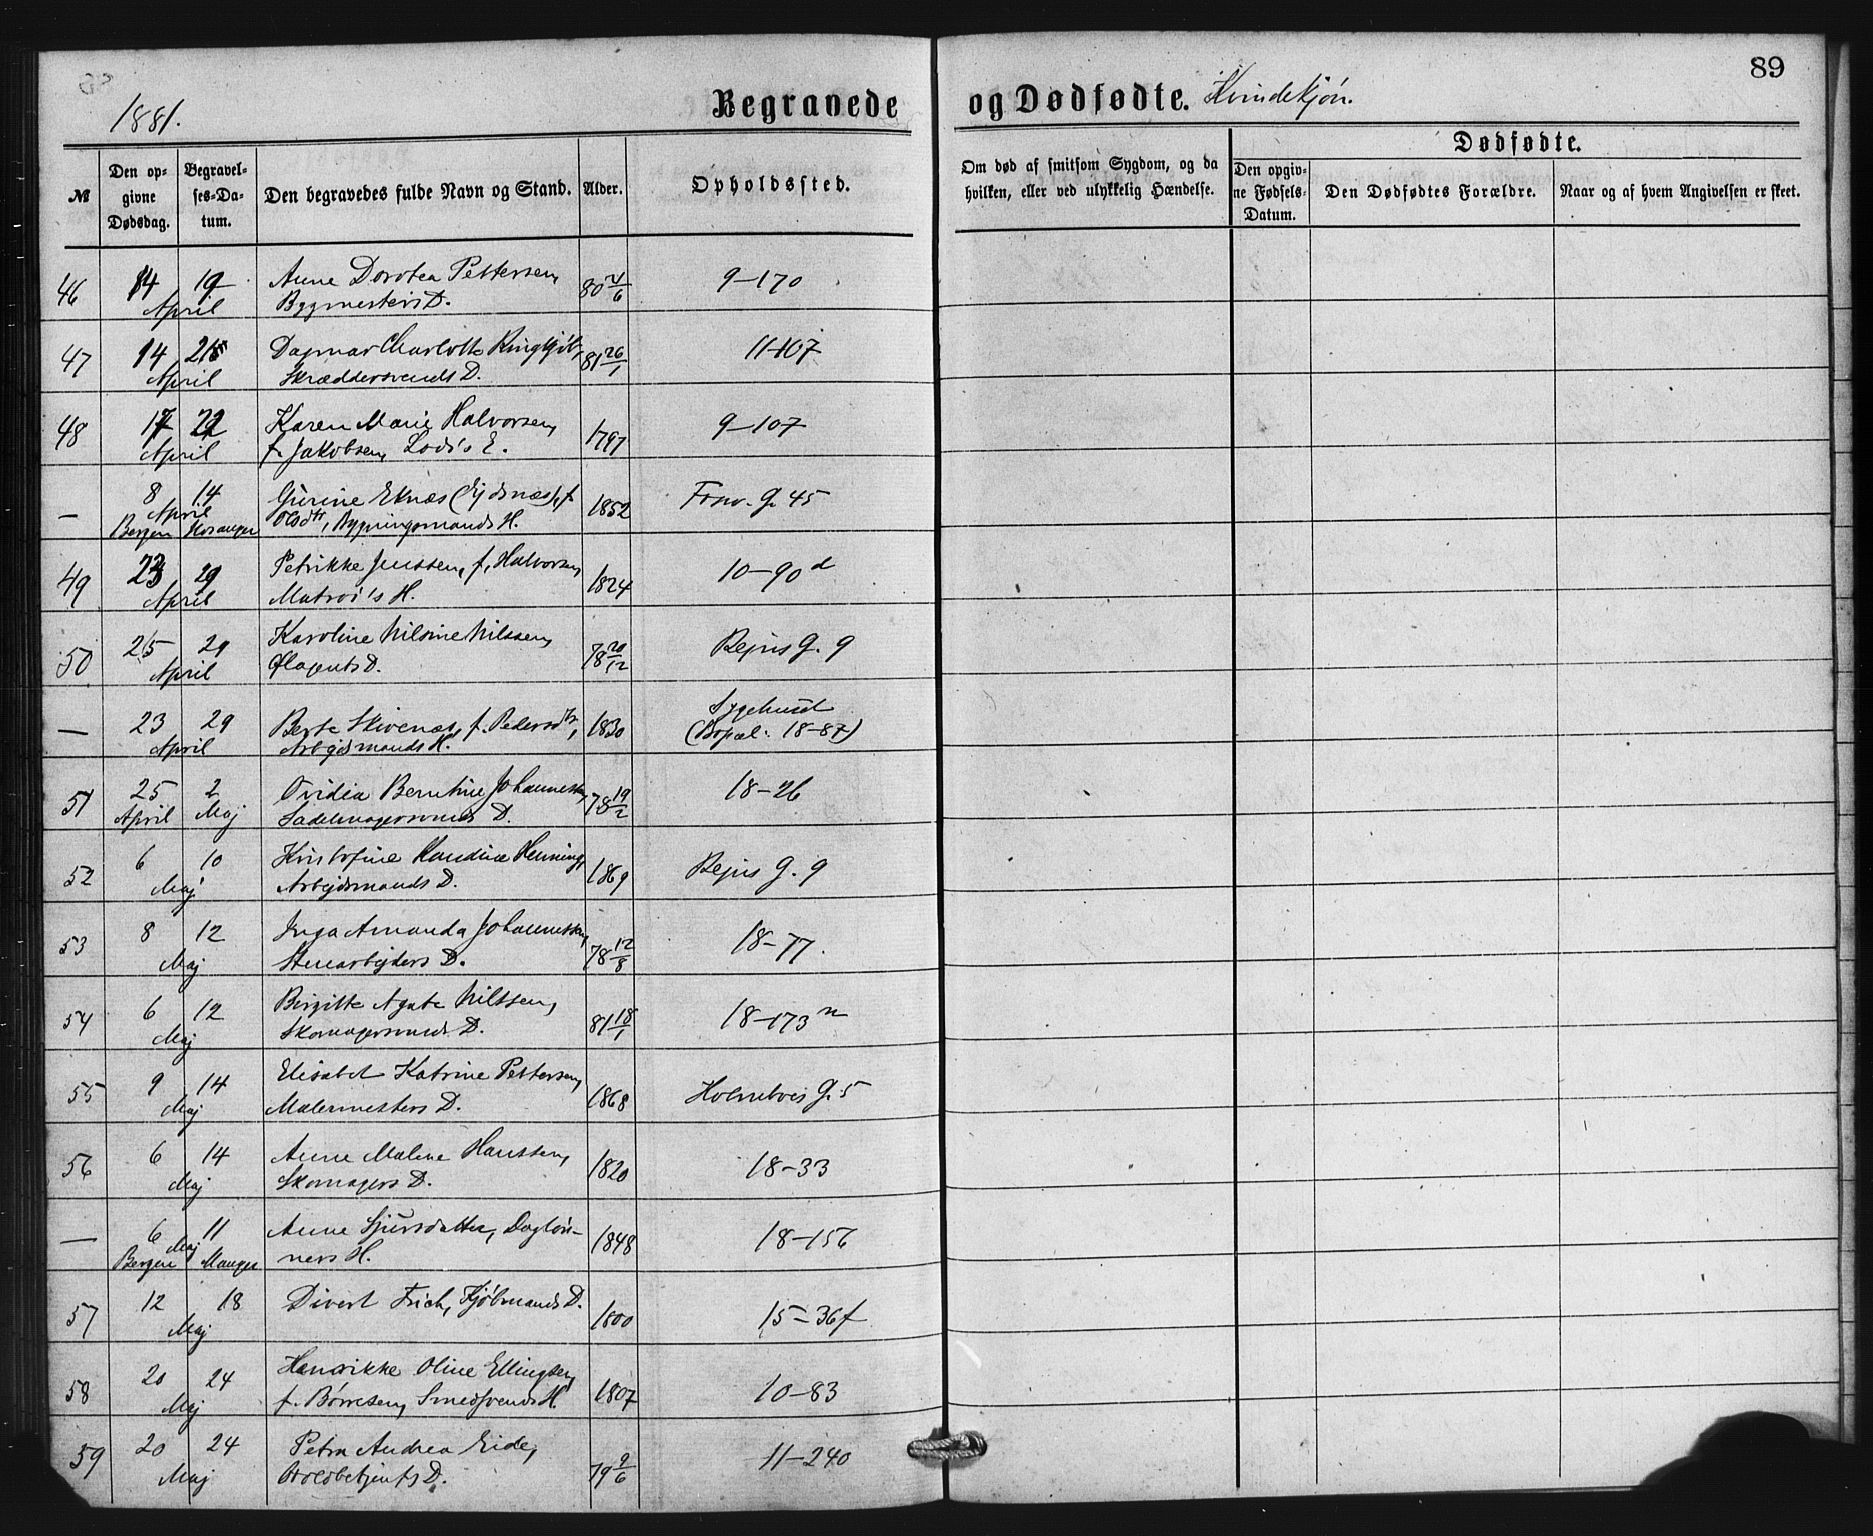 89
1881.
Begravede og Dødfødte. Kvindekjøn.
№
Den opgivne Dødsdag.
Begravelses-Datum.
Den begravedes fulde Navn og Stand.
Alder.
Opholdssted.
Om død af smitsom Sygdom, og da hvilken, eller ved ulykkelig Hændelse.
Dødfødte.
Den opgivne Fødsels-Datum.
Den Dødfødtes Forældre.
Naar og af hvem Angivelsen er skeet.
46 14 19 Anne Dorotea Pettersen, 80 21/6 9-170
April Bygmesters D.
47 14 Dagmar Charlotte 81 26/1 11-107
April Skræddersvends D.
48 17 22 Karen Marie Halvorsen, 1797 9-107
April f. Jakobsen, Lods's E.
— 8 14 Gurine Eknæs (Ejdsnæs), f. 1852 G. 45
April Olsdtr, Bygningsmands H.
Bergen
49 23 29 Petrikke Jenssen, f. Halvorsen, 1824 10-90 d
April Matros's H.
50 25 29 Karoline Nilsine Nilssen, 78 20/12 Rejris G. 9
April D.
— 23 29 Berte Skivenes, f. Pedersdtr, 1830 Sygehuset
April Arbejdsmands H. (Bopæl: 18-87)
51 25 2 Ovidia Berntine Johannessen, 78 19/2 18-26
April Maj Sadelmagersvends D.
52 6 10 Kristofine Henning, 1869 Rejris G. 9
Maj Arbejdsmands D.
53 8 12 Inga Amanda Johannessen, 78 12/8 18-77.
Maj Stenarbejders D.
54 6 12 Birgitte Agate Nilssen, 81 18/1 18-173 n
Maj Skomagersvends D.
55 9 14 Elisabet Katrine Pettersen, 1868 G. 5
Maj Malermesters D.
56 6 14 Anne Malene Hanssen, 1820 18-33
Maj Skomagers D.
— 6 11 Anne Sjursdatter, Dagløn- 1848 18-156
Maj ners H.
Bergen Manger
57 12 18 Divert Frich, Kjøbmands D. 1800 15-36f
Maj
58 20 24 Henrikke Oline Ellingsen, 1807 10-83
Maj f. Børresen, Smedsvends H.
59 20 24 Petra Andrea Eide, 79 9/6 11-240
Maj D.